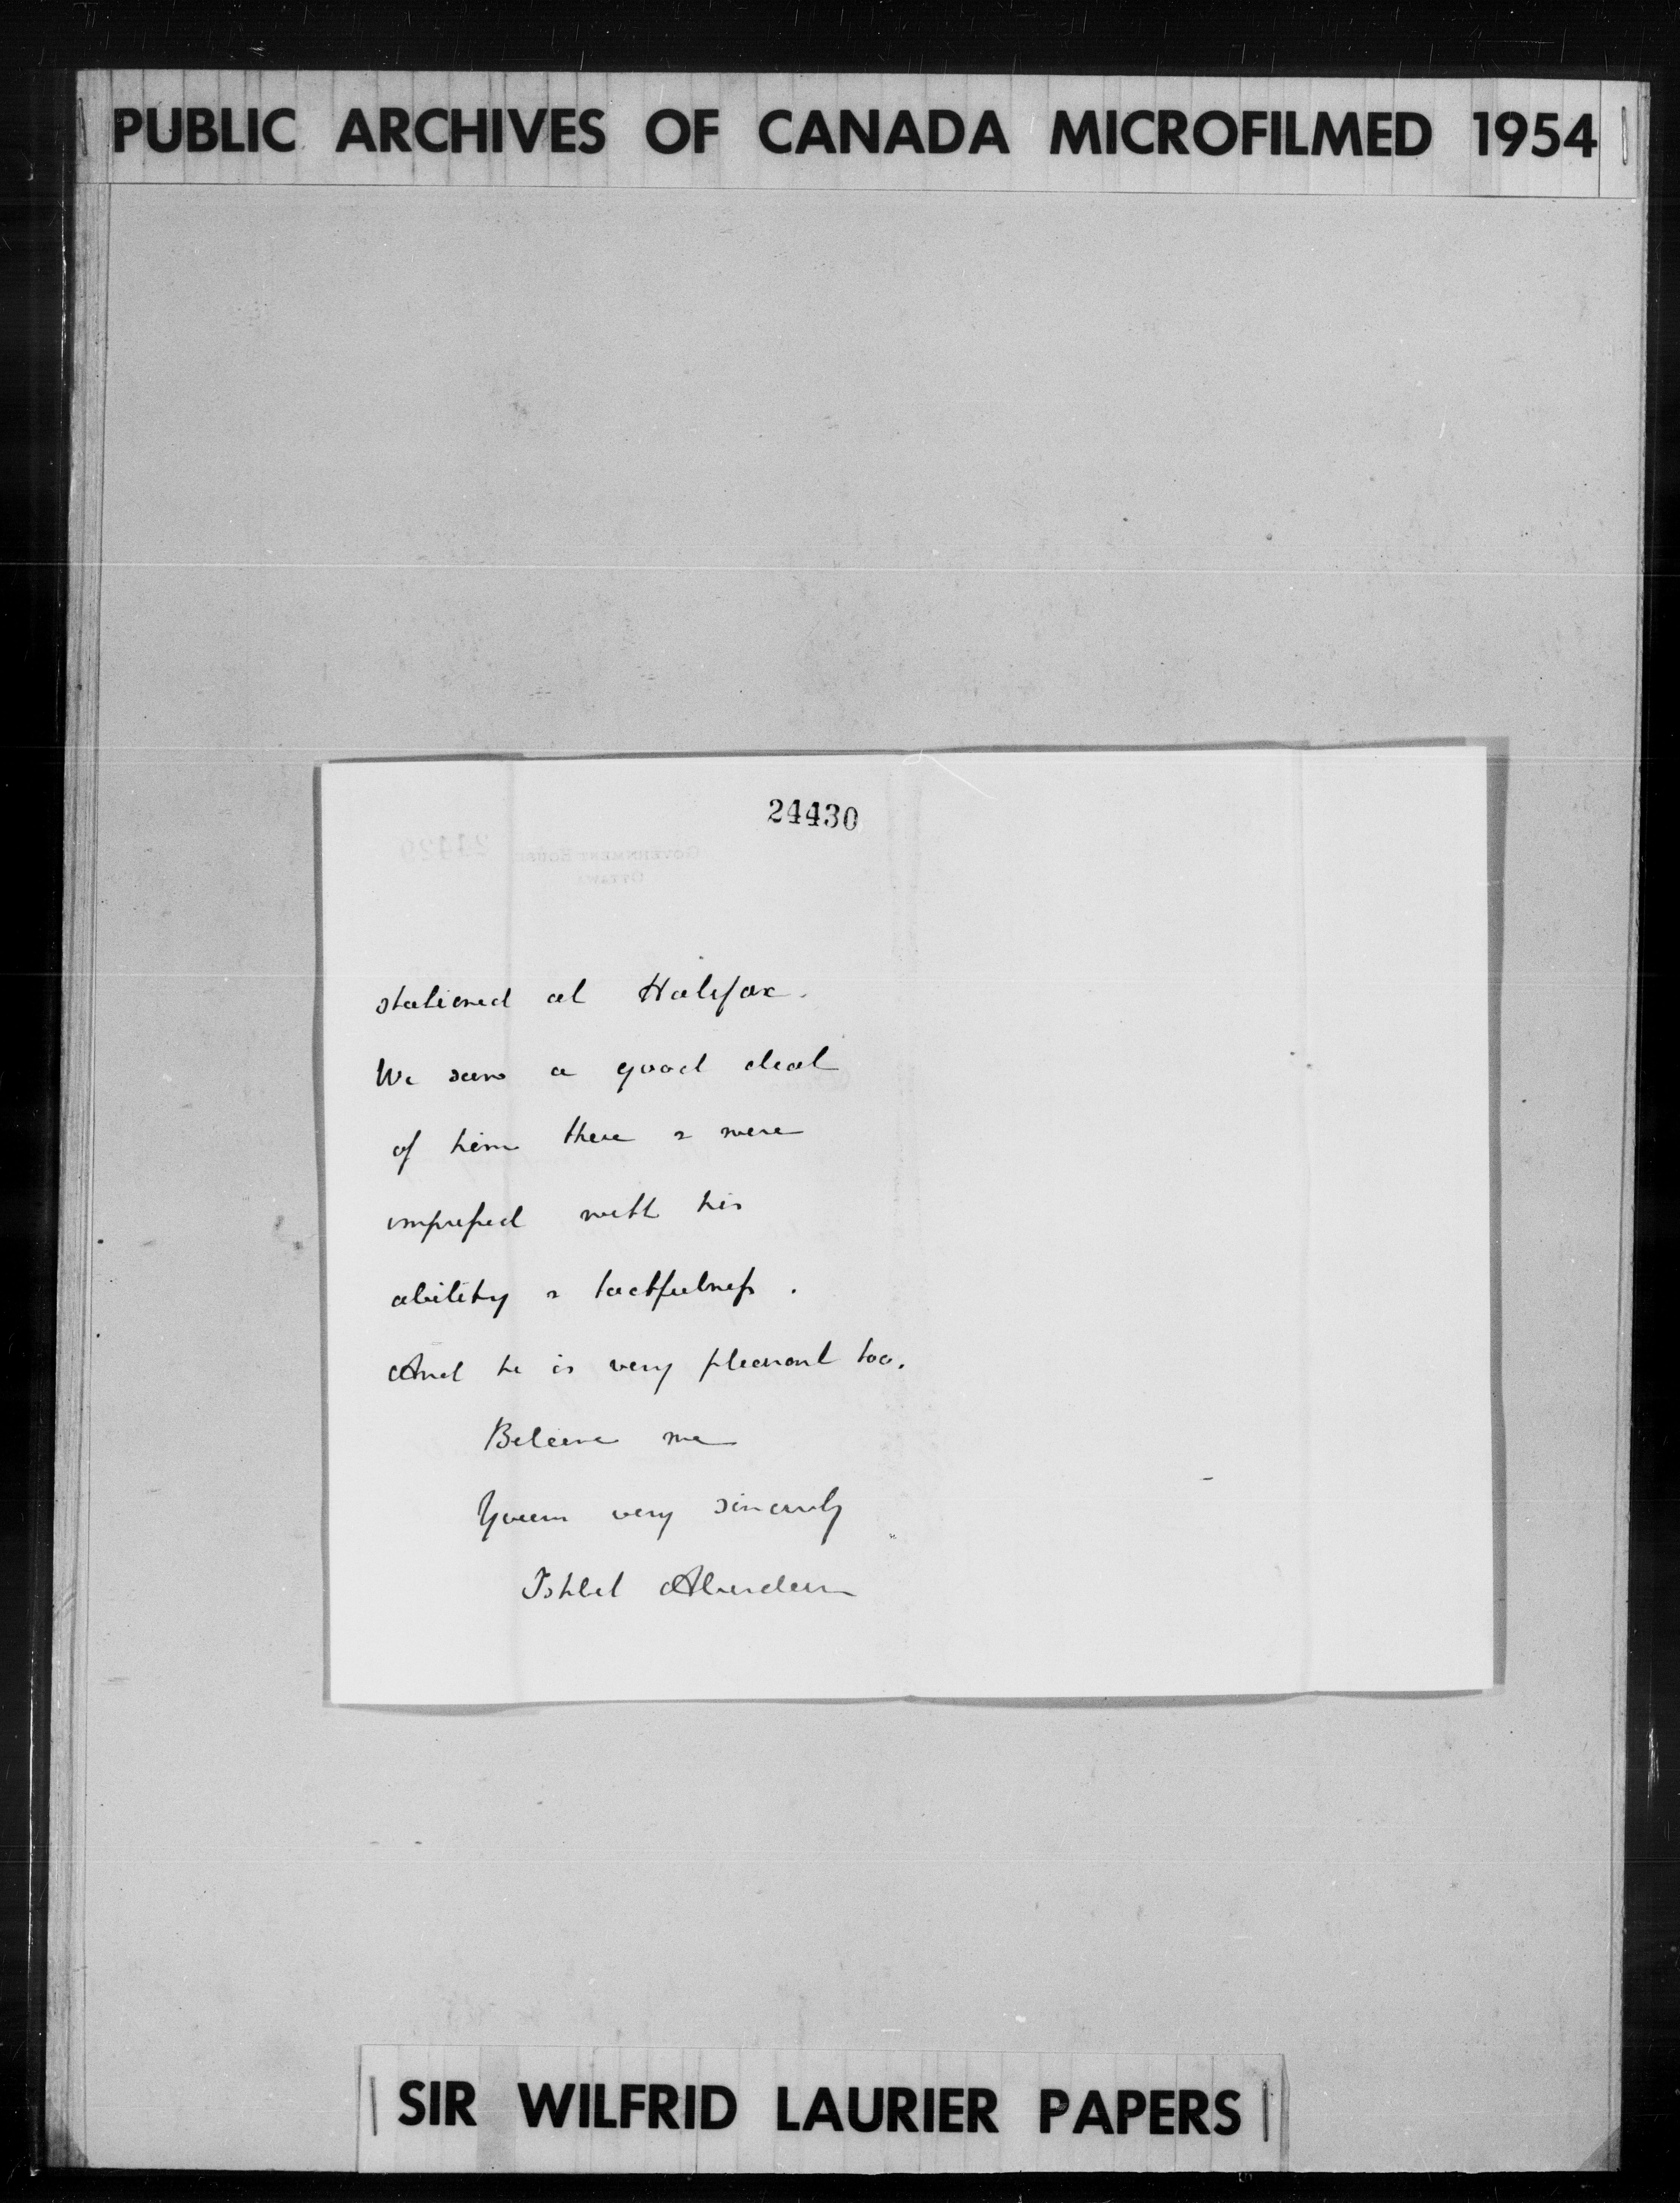 PUBLIC ARCHIVES OF CANADA MICROFILMED 1954
24430
24429
GOVERNMENT HOUSE
OTTAWA
stationed at Halifax.
We saw a good deal
of him there & were
impressed with his
ability & tactfulness.
And he is very pleasant too.
Believe me
Yours very sincerely
Ishbel Aberdeen
SIR WILFRID LAURIER PAPERS